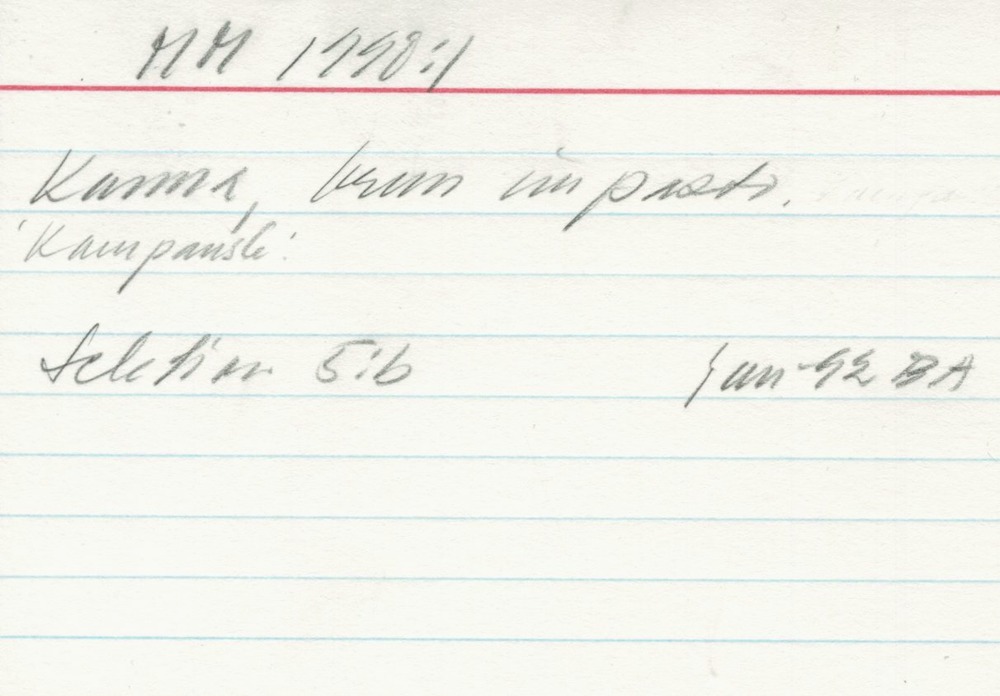 MM 1998:1
Kanna, brun impasto.
'Kampansk'.
Sektion 5:b jun-92 BA